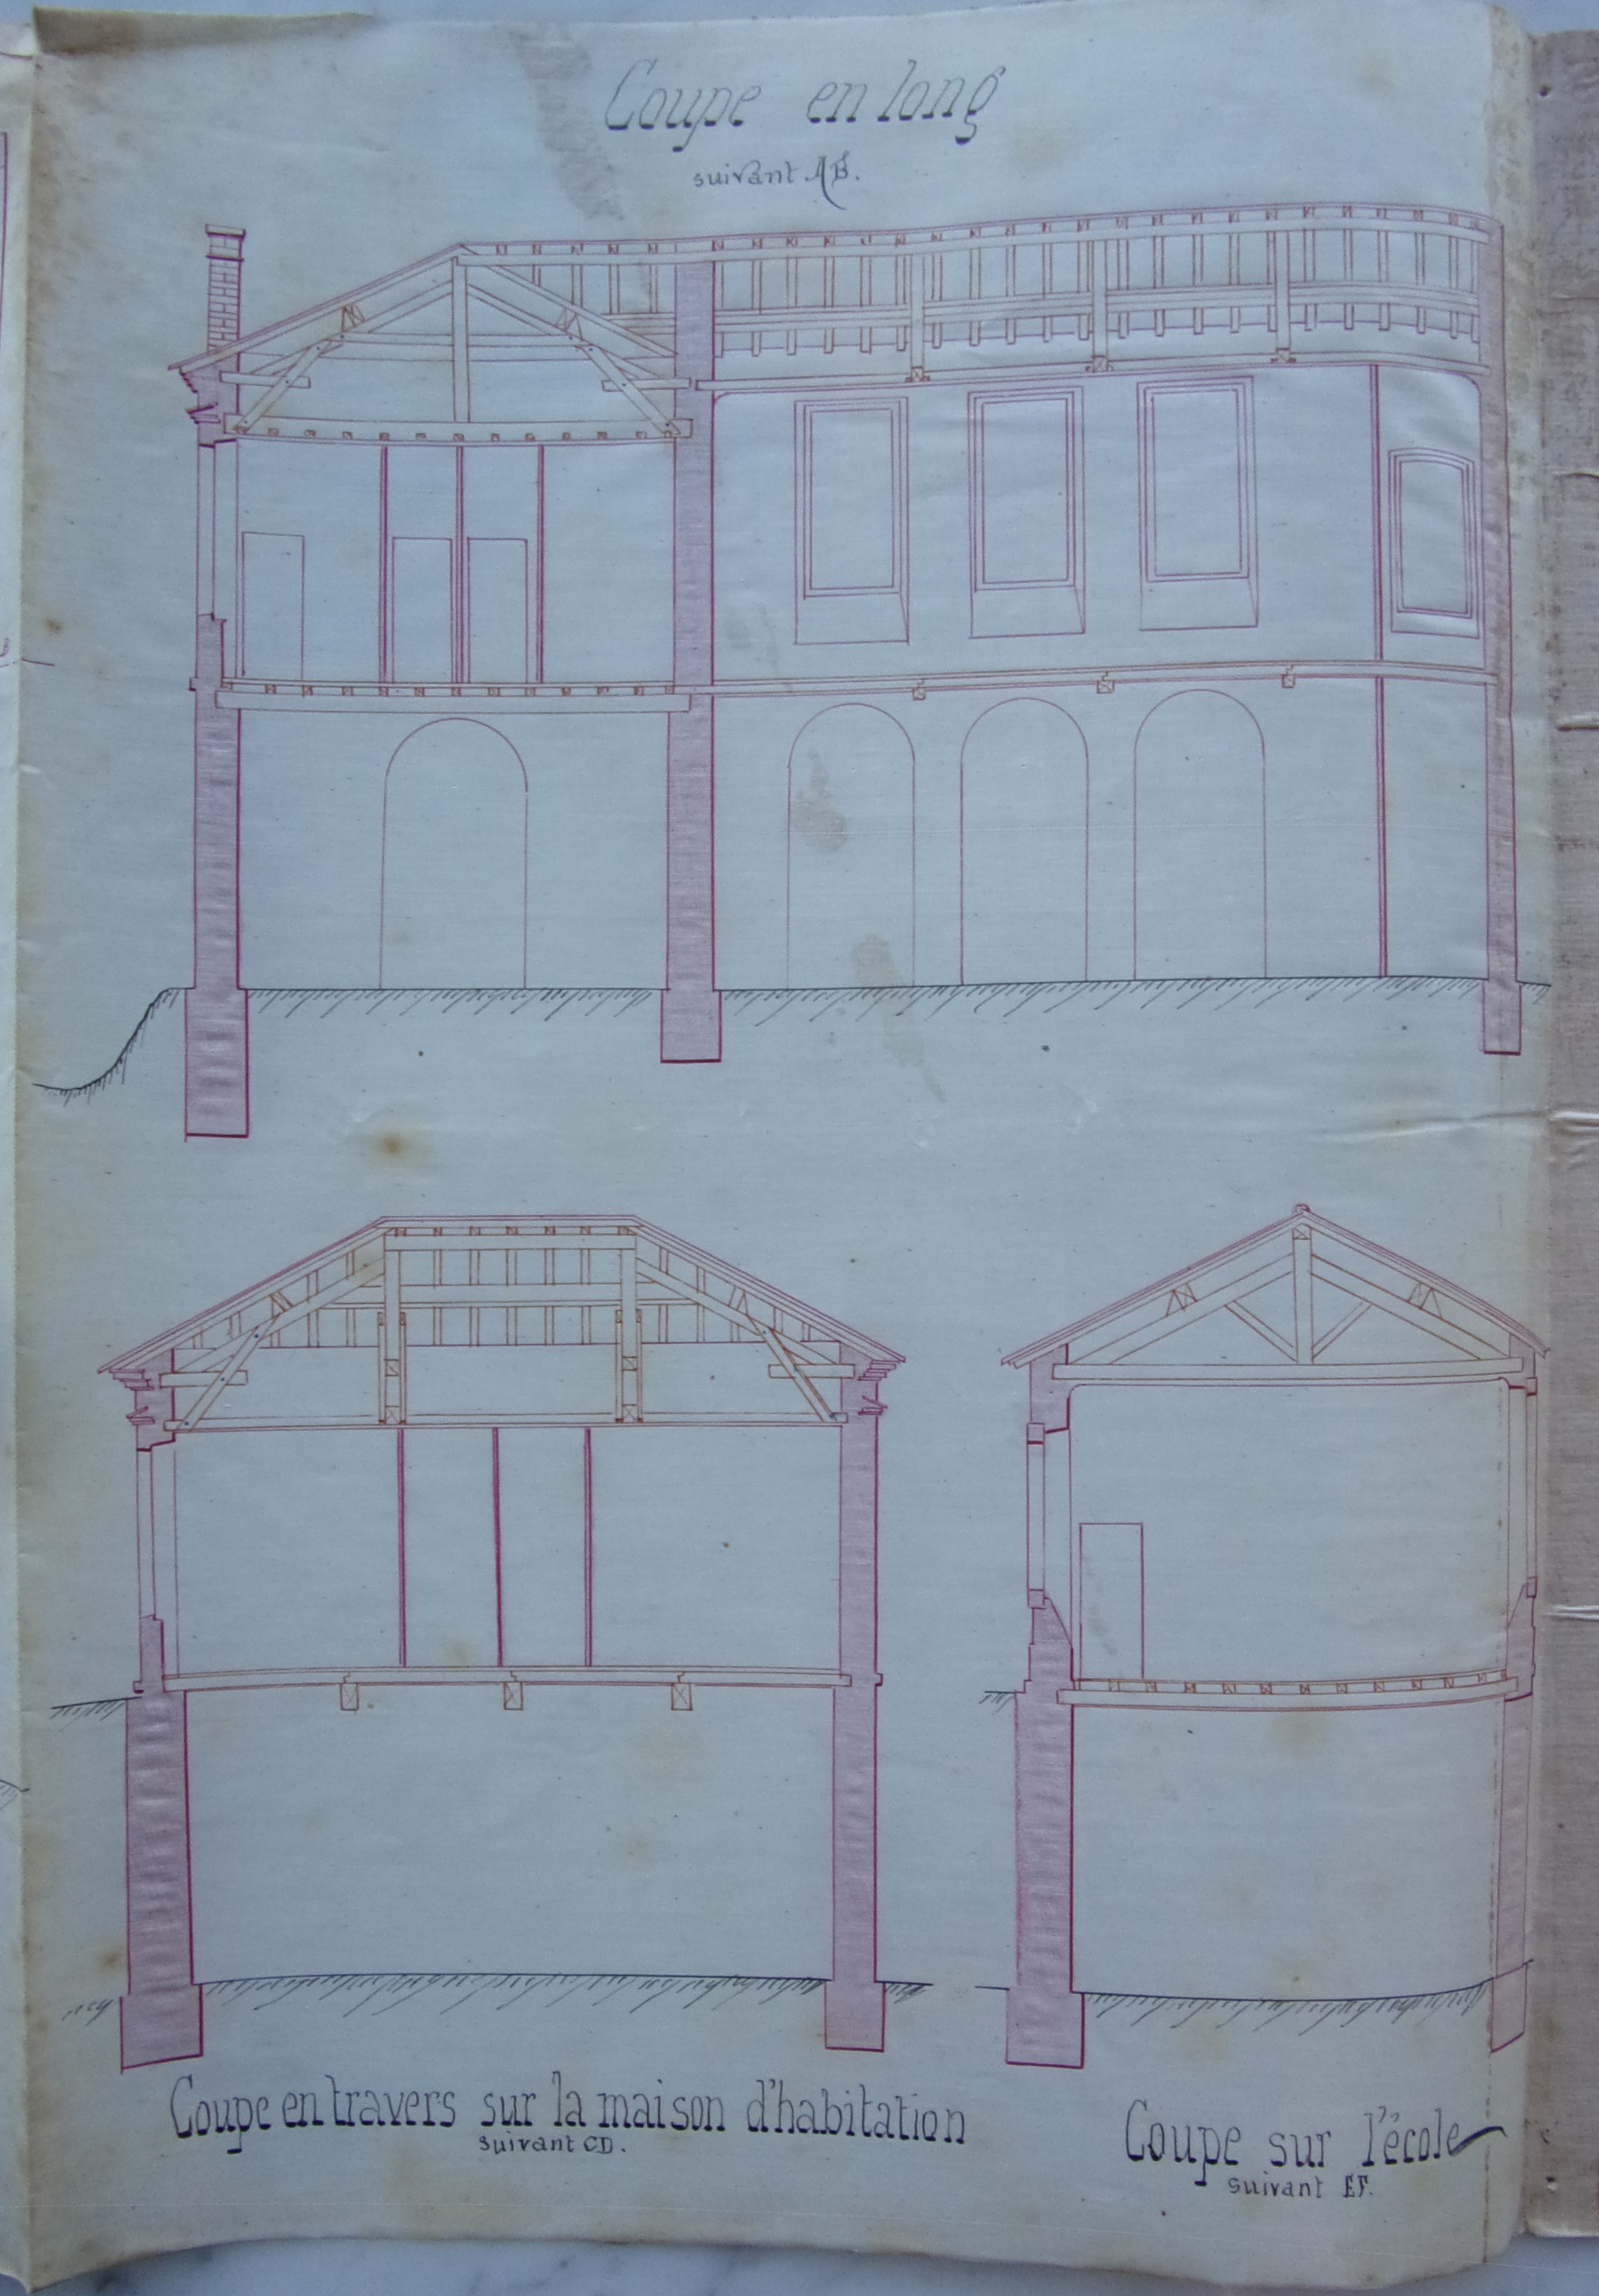 Coupe en long
suivant AB.
B
Coupe en travers sur la maison d'habitation
suivant CD.
Coupe sur l'école
suivant EF.